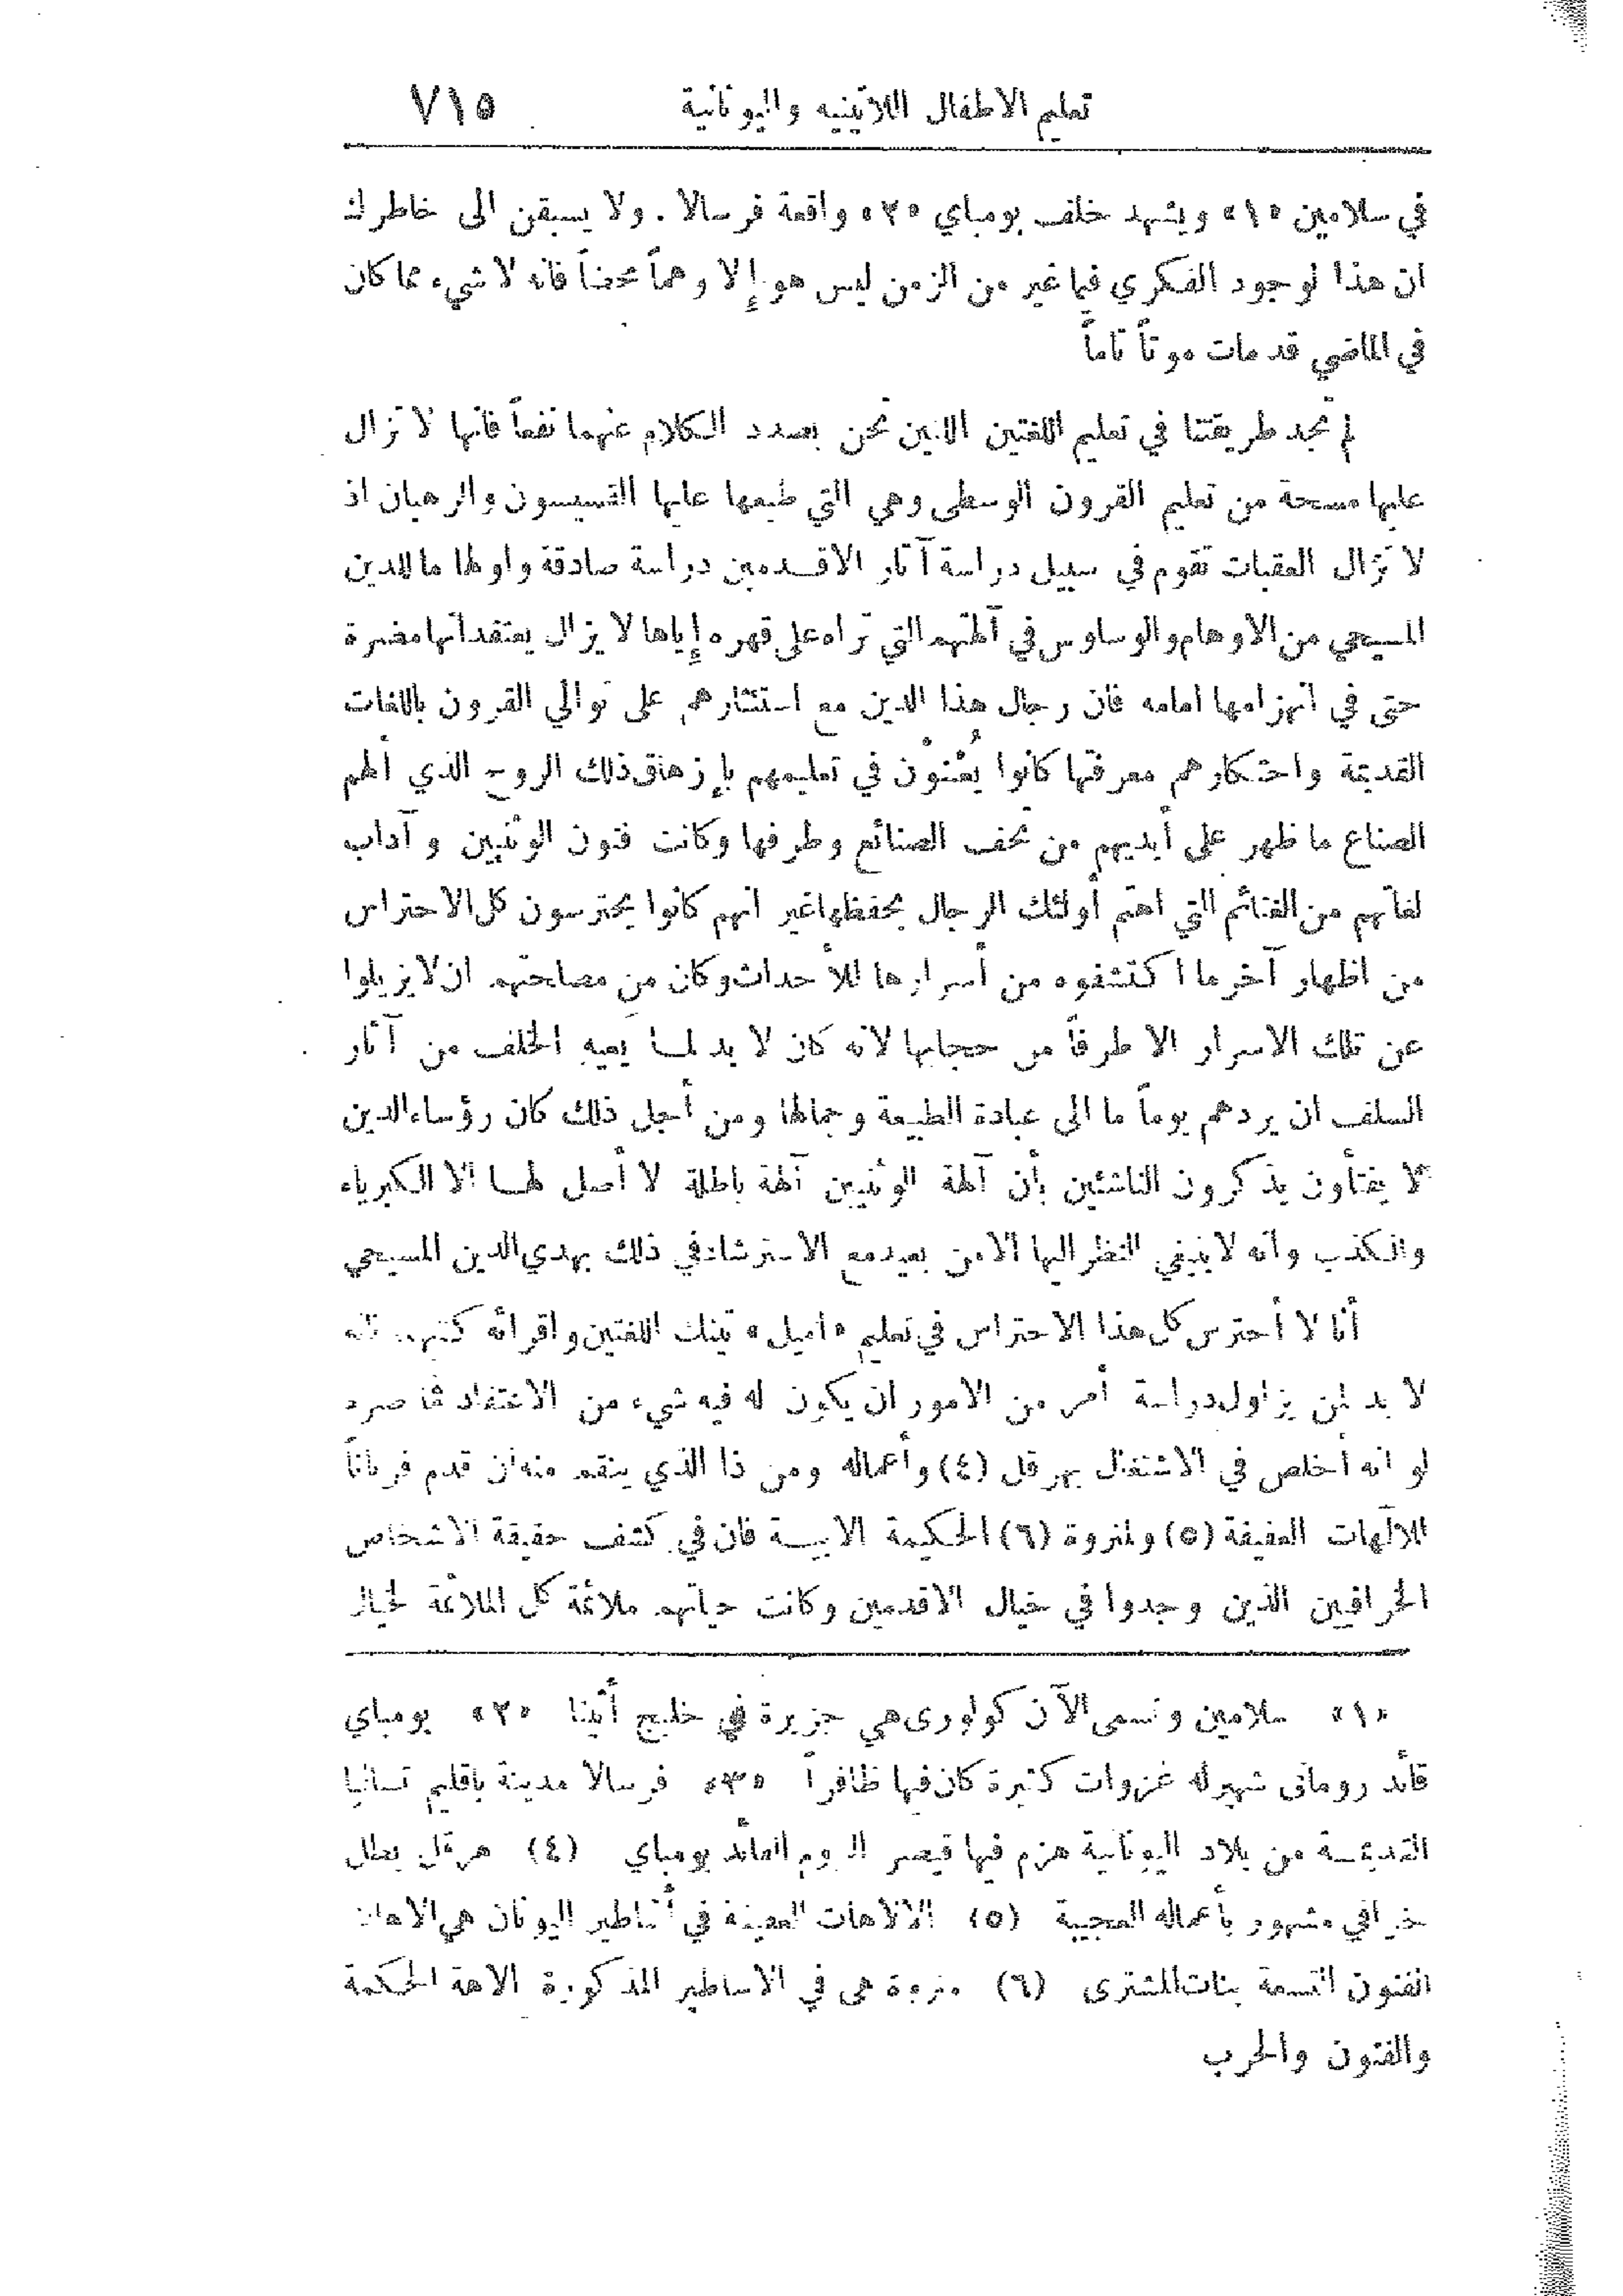 تعليم الاطفال اللاتينيه واليونانية ٧١٥
في سلامين «١» ويشهد خلف بومباي «٢» واقعة فرسالا . ولا يسبقن الى خاطرك
ان هذا لوجود الفكري فيما غبر من الزمن ليس هو إلا وهماً محضاً فانه لا شيء مما كان
في الماضي قد مات موتاً تاماً
لم نجد طريقتنا في تعليم اللغتين اللتين نحن بصدد الكلام عنهما نفعاً فانها لا تزال
عليها مسحة من تعليم القرون الوسطى وهي التي طبعها عليها القسيسون والرهبان اذ
لا تزال العقبات تقوم في سبيل دراسة آثار الاقدمين دراسة صادقة واولها ما للدين
المسيحي من الاوهام والوساوس في آلهتهم التي تراه على قهره إياها لا يزال يعتقد انها مضرة
حتى في انهزامها امامه فان رجال هذا الدين مع استئثارهم على توالي القرون باللغات
القديمة واحتكارهم معرفتها كانوا يُعْنَوْن في تعليمهم بإزهاق ذلك الروح الذي ألهم
الصناع ما ظهر على أيديهم من تحف الصنائع وطرفها وكانت فنون الوثنيين وآداب
لغاتهم من الغنائم التي اهتم أولئك الرجال بحفظها غير انهم كانوا يحترسون كل الاحتراس
من اظهار آخر ما اكتشفوه من أسرارها للأحداث وكان من مصلحتهم ان لا يزيلوا
عن تلك الاسرار الا طرفاً من حجابها لانه كان لا بد لما يعيه الخلف من آثار
السلف ان يردهم يوماً ما الى عبادة الطبيعة وجمالها ومن أجل ذلك كان رؤساء الدين
لا يفتأون يذكرون الناشئين بأن آلهة الوثنيين آلهة باطلة لا أصل لها الا الكبرياء
والكذب وانه لا ينبغي النظر اليها الا من بعيد مع الاسترشاد في ذلك بهدي الدين المسيحي
أنا لا أحترس كل هذا الاحتراس في تعليم «اميل» تينك اللغتين واقرائه كتبهما فانه
لا بد لمن يزاول دراسة أمر من الامور ان يكون له فيه شيء من الاعتقاد فما ضره
لو انه أخلص في الاشتغال بهرقل (٤) وأعماله ومن ذا الذي ينقم منه ان قدم قرباناً
للالهات العفيفة (٥) ولمنروة (٦) الحكيمة الابية فان في كشف حقيقة الاشخاص
الخرافيين الذين وجدوا في خيال الاقدمين وكانت حياتهم ملائمة كل الملائمة لخيال
«١» سلامين وتسمى الآن كولورى هي جزيرة في خليج أثينا «٢» بومباي
قائد رومانى شهير له غزوات كثيرة كان فيها ظافراً «٣» فرسالا مدينة باقليم تساليا
القديمة من بلاد اليونانية هزم فيها قيصر الروم القائد بومباي (٤) هرقل بطل
خرافي مشهور بأعماله العجيبة (٥) الالاهات العفيفة في أساطير اليونان هي الاهات
الفنون التسعة بنات المشترى (٦) منروة هى في الاساطير المذكورة الاهة الحكمة
والفنون والحرب